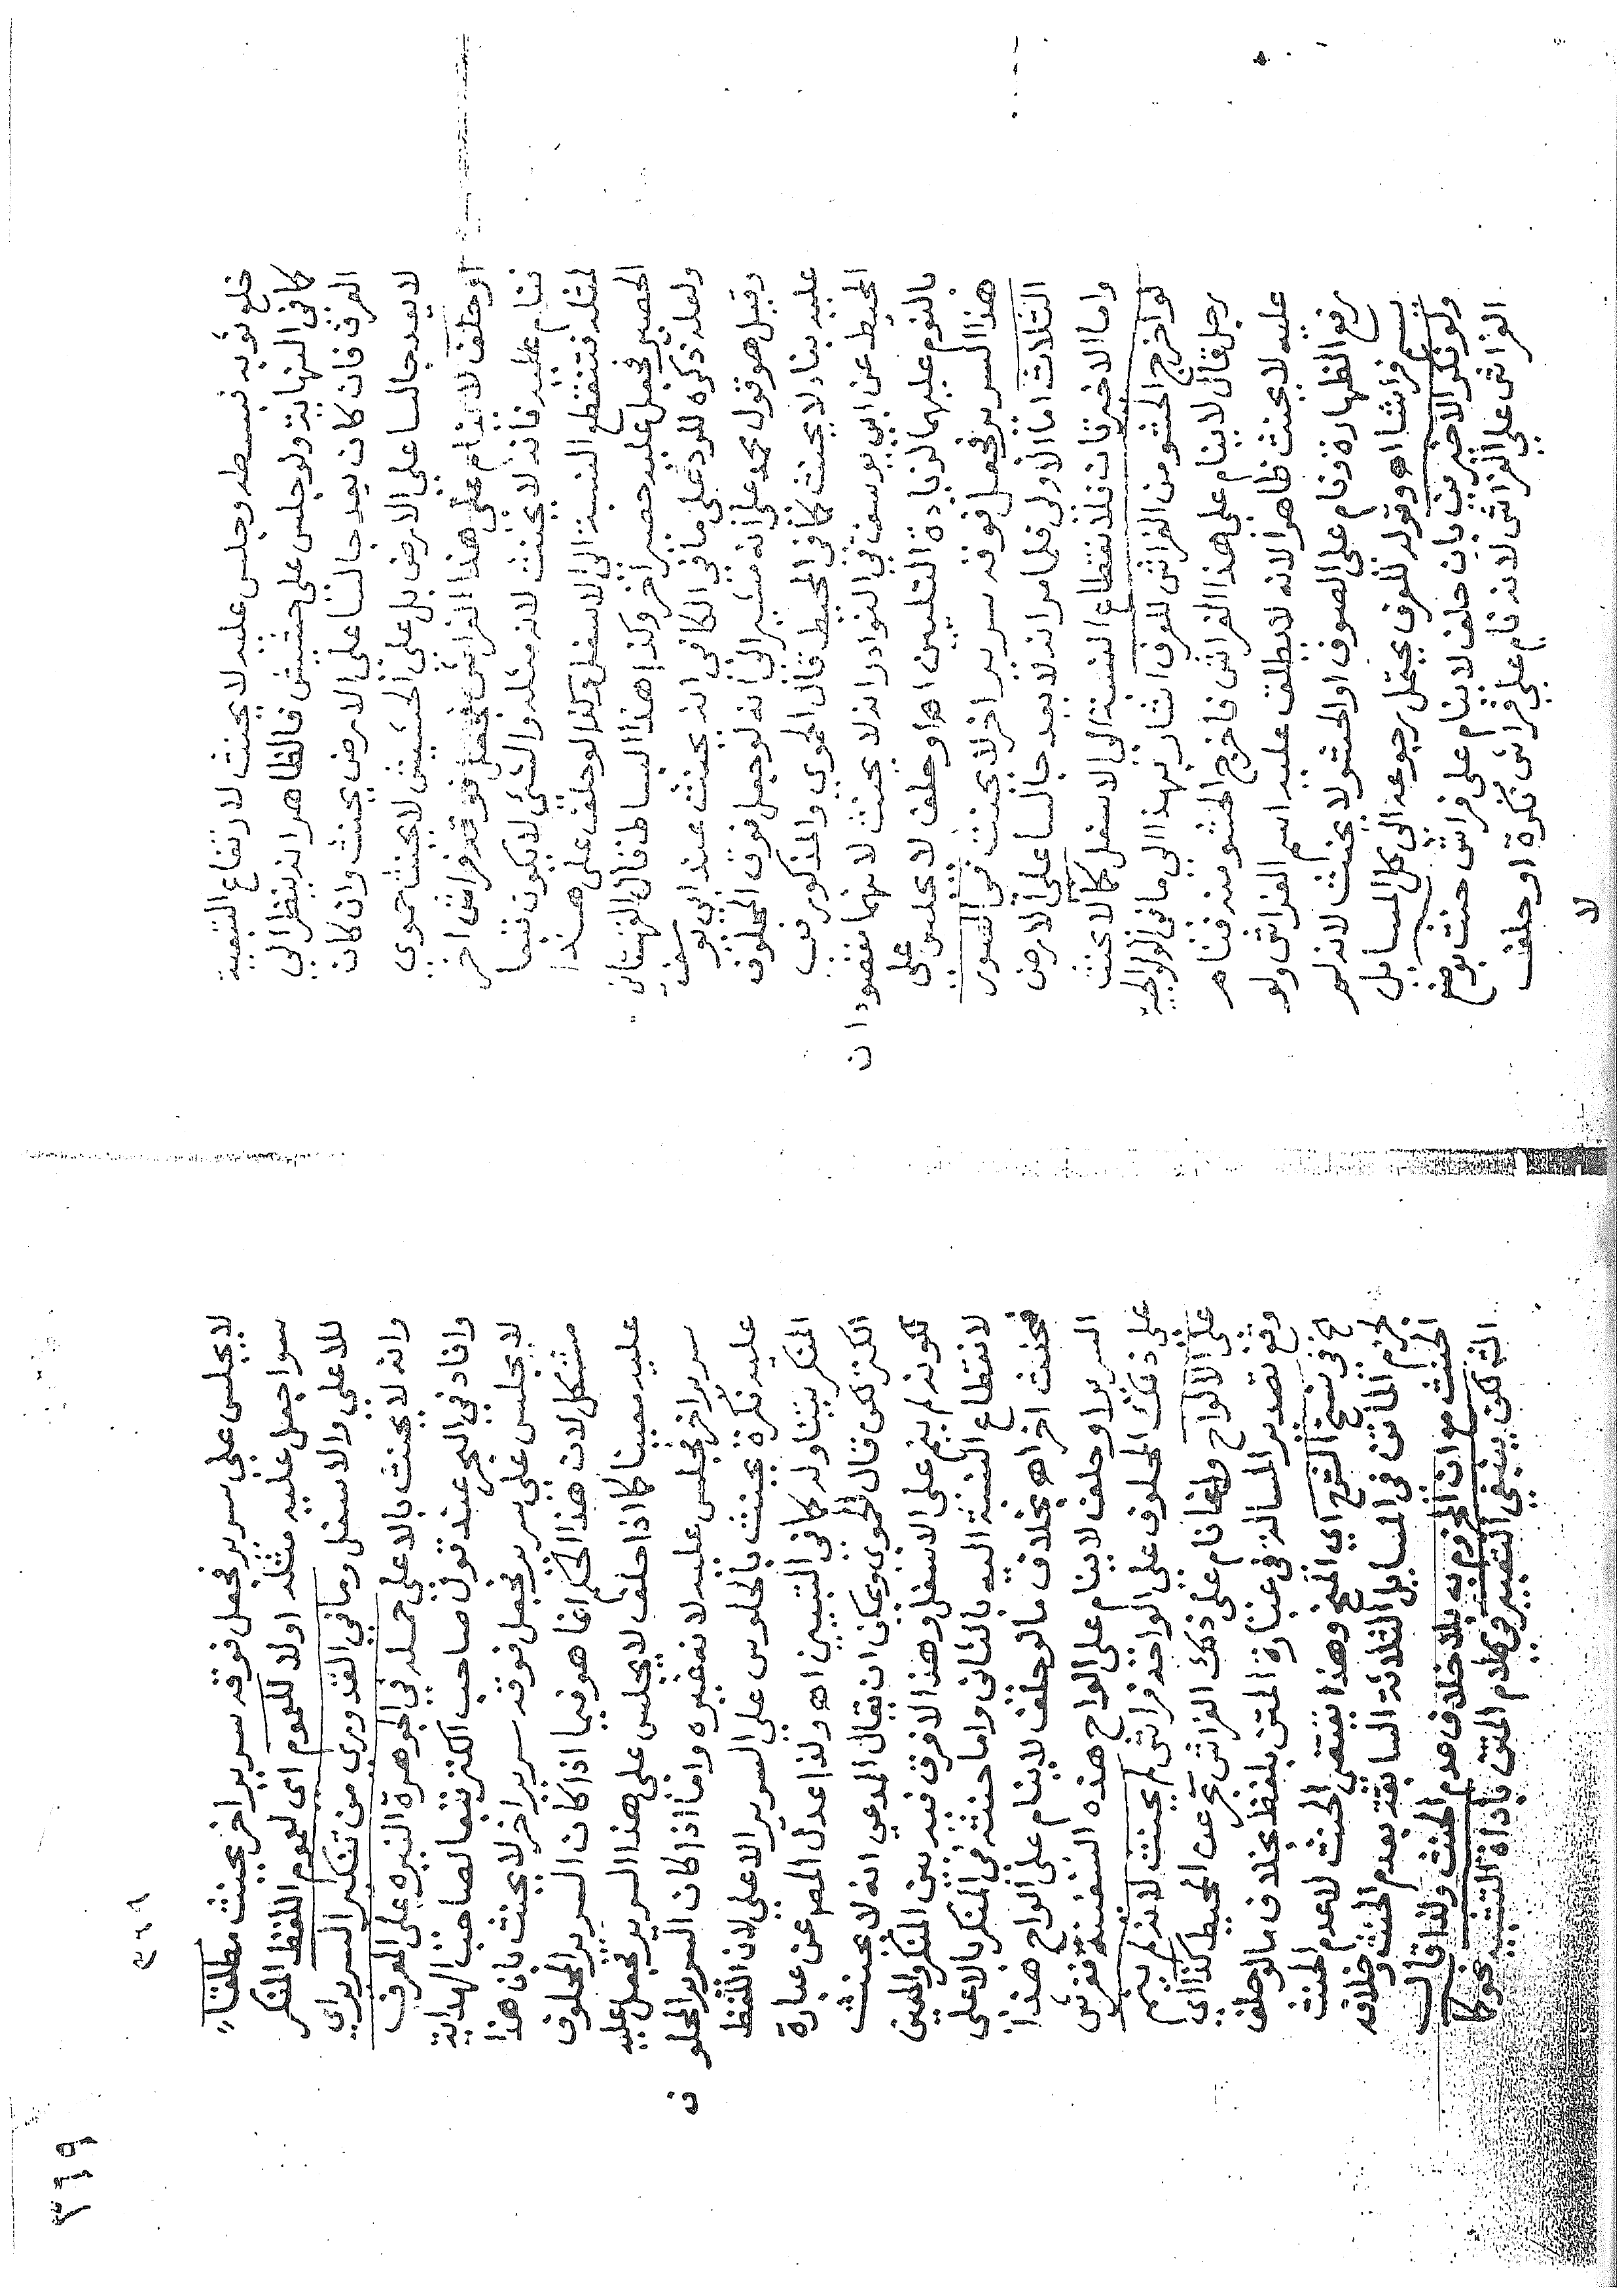 خلع ثوبه فبسطه وجلس عليه لا يحنث لارتفاع التبعية
كما في النهاية ولو جلس على حشيش فالظاهر انه ينظر الي
العرف فان كان يعد جالسا على الارض يحنث وان كان
لا يعد جالسا على الارض بل على الحشيش لا يحنث حموي
او حلف لا ينام على هذا الفراش فجعل فوقه فراش اخر
فنام عليه فانه لا يحنث لانه مثله والشي لا يكون تبعا
لمثله فتنقطع النسبة الى الاسفل وكذا لو حلف على هذا
الحصير فجعل عليه حصير اخر وكذا هذا البساط قال القهستاني
ولعله ذكره للرد على ما في الكافي انه يحنث عند ابي يوسف
وقيل هو قول محمد على انه مشير الى انه لو جعل فوق المحلوف
عليه بناء لا يحنث كما في المحيط قال الحموي والمذكور في
المحيط عن ابي يوسف في النوادر انه لا يحنث لانهما مقصودان
بالنوم عليهما لزيادة التليين اه او حلف لا يجلس على
هذا السرير فجعل فوقه سرير اخر لا يحنث في الصور
الثلاث اما الاولى فلما مر انه لا يعد جالسا على الارض
واما الاخرتان فلانقطاع النسبة الى الاسفل كما لا يحنث
لو اخرج الحشو من الفراش للعرف اشار بهذا الى ما في الولوالجية
رجل قال لا ينام على هذا الفراش فاخرج الحشو منه فنام
عليه لا يحنث ظاهرا لانه لا يطلق عليه اسم الفراش ولو
رفع الظهارة ونام على الصوف او الحشو لا يحنث لانه لم
يسم فراشا اه وقوله للعرف يحتمل رجوعه الى كل المسايل
ولو نكر الاخيرين بان حلف لا ينام على فراش حنث بوضع
الفراش على الفراش لانه نام على فراش نكرة او حلف
لا
٣٦٩
٣٦٩
لا يجلس على سرير فجعل فوقه سرير اخر يحنث مطلقا
سوا جعل عليه مثله اولا للعموم اى لعموم اللفظ المنكر
للاعلي والاسفل وما في القدوري من تنكير السرير اي
وانه لا يحنث بالاعلي حمله في الجوهرة النيره على المعرف
وافاد في البحر عند قول صاحب الكنز تبعا لصاحب الهداية
لا يجلس على سرير فجعل فوقه سرير اخر لا يحنث بان هذا
مشكل لان هذا الحكم انما هو فيما اذا كان السرير المحلوف
عليه معينا كما اذا حلف لا يجلس على هذا السرير فجعل عليه
سرير اخر فجلس عليه لانه غيره واما اذا كان السرير المحلوف
عليه نكرة يحنث بالجلوس على السرير الاعلي لان اللفظ
المنكر يتناوله كما في التبيين اه ولذا عدل المص عن عبارة
الكنز لكن قال الحموي ويمكن ان يقال المدعي انه لا يحنث
لكونه لم ينم على الاسفل وهذا لا فرق فيه بين المنكر والمعين
لانقطاع النسبة اليه بالثاني واما حنثه في المنكر بالاعلى
فحنث اخر اه بخلاف ما لو حلف لا ينام على الواح هذا
السرير او حلف لا ينام على الواح هذه السفينة ففرش
على ذلك المحلوف على الواحه فراش لم يحنث لانه لم ينم
على الالواح وانما نام على ذلك الفراش بحر عن المحيط كذا اي
وقع تصدير المسالة في عبارة المتن بلفظ بخلاف ما لو حلف
في نسخ الشرح اي المنح وهذا يقتضى الحنث لا عدم الحنث
لجزم الماتن في المسايل الثلاثة السابقة بعدم الحنث وخلاف
الحنث مع ان المجزوم به بلا خلاف عدم الحنث ولذا قال
الشم لكن ينبغي التعبير في كلام المتن باداة التشبيه نحو كما